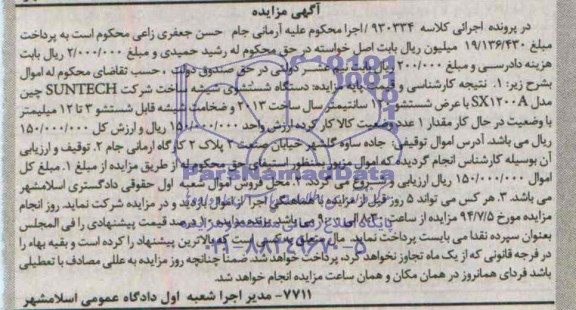 آگهی مزایده
در پرونده اجرائی کلاسه ۹۳۰۳۳۴ /اجرا محکوم علیه آرمانی جام حسن جعفری زاعی محکوم است به پرداخت
مبلغ ۱۹/۱۳۶/۴۳۰ میلیون ریال بابت اصل خواسته در حق محکوم له رشید حمیدی و مبلغ ۲/۰۰۰/۰۰۰ ریال بابت
هزینه دادرسی و مبلغ ۲۰۰/۰۰۰ ریال بابت نیم عشر دولتی در حق صندوق دولت ، حسب تقاضای محکوم له اموال
بشرح زیر: ۱. نتیجه کارشناسی و قیمت پایه مزایده: دستگاه شستشوی شیشه ساخت شرکت SUNTECH چین
مدل SX۱۲۰۰A با عرض شستشو ۱۲۰ سانتیمتر سال ساخت ۲۰۱۳ و ضخامت شیشه قابل شستشو ۳ تا ۱۲ میلیمتر
با وضعیت در حال کار مقدار ۱ عدد وضعیت کالا کار کرده ارزش واحد ۱۵۰/۰۰۰/۰۰۰ ریال و ارزش کل ۱۵۰/۰۰۰/۰۰۰
ریال می باشد. آدرس اموال توقیفی: جاده ساوه گلشهر خیابان صنعت ۳ پلاک ۲ کارگاه آرمانی جام ۲. توقیف و ارزیابی
آن بوسیله کارشناس انجام گردیده که اموال مزبور بمنظور استیفای حق محکوم له از طریق مزایده از مبلغ ۱. مبلغ کل
اموال ۱۵۰/۰۰۰/۰۰۰ ریال ارزیابی و شروع می گردد. ۲. محل فروش اموال شعبه اول حقوقی دادگستری اسلامشهر
می باشد. ۳. هر کس می تواند ۵ روز قبل از مزایده با هماهنگی اجرا از اموال بازدید و در مزایده شرکت نماید. روز انجام
مزایده مورخ ۹۴/۷/۵ از ساعت ۸:۳۰ الی ۹:۰۰ می باشد برنده مزایده ۱۰ درصد قیمت پیشنهادی را فی المجلس
بعنوان سپرده نقدا می بایست پرداخت نماید. مال متعلق به کسی است که بالاترین پیشنهاد را کرده است و بقیه بهاء را
در فرجه قانونی که از یک ماه تجاوز نخواهد کرد، پرداخت خواهد شد. ضمناً چنانچه روز مزایده به عللی مصادف با تعطیلی
باشد فردای همانروز در همان مکان و همان ساعت مزایده انجام خواهد شد.
۷۷۱۱- مدیر اجرا شعبه اول دادگاه عمومی اسلامشهر
ParsNamadData